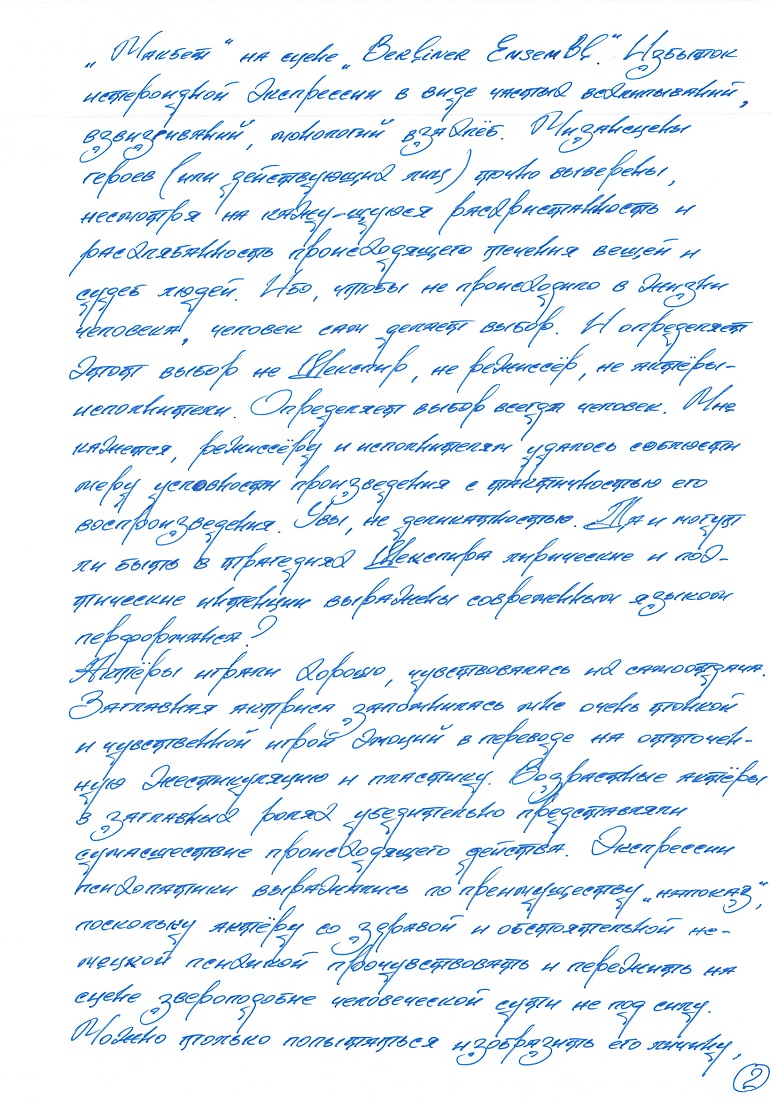 „Макбет“ на сцене „Berliner Ensembl“. Избыток
истероидной экспрессии в виде частых всхлипываний,
взвизгиваний, монологий взахлёб. Мизансцены
героев (или действующих лиц) точно выверены,
несмотря на кажу-щуюся расхристанность и
расхлябанность происходящего течения вещей и
судеб людей. Ибо, чтобы не происходило в жизни
человека, человек сам делает выбор. И определяет
этот выбор не Шекспир, не режиссёр, не актёры-
исполнители. Определяет выбор всегда человек. Мне
кажется, режиссёру и исполнителям удалось соблюсти
меру условности произведения с тактичностью его
воспроизведения. Увы, не деликатностью. Да и могут
ли быть в трагедиях Шекспира лирические и поэ-
тические интенции выражены современным языком
перформанса?
Актёры играли хорошо, чувствовалась их самоотдача.
Заглавная актриса запомнилась мне очень тонкой
и чувственной игрой эмоций в переводе на отточен-
ную жестикуляцию и пластику. Возрастные актёры
в заглавных ролях убедительно представляли
сумасшествие происходящего действа. Экспрессии
психопатики выражались по преимуществу „напоказ“,
поскольку актёру со здравой и обстоятельной не-
мецкой психикой прочувствовать и пережить на
сцене звероподобие человеческой сути не под силу.
Можно только попытаться изобразить его личину,
2